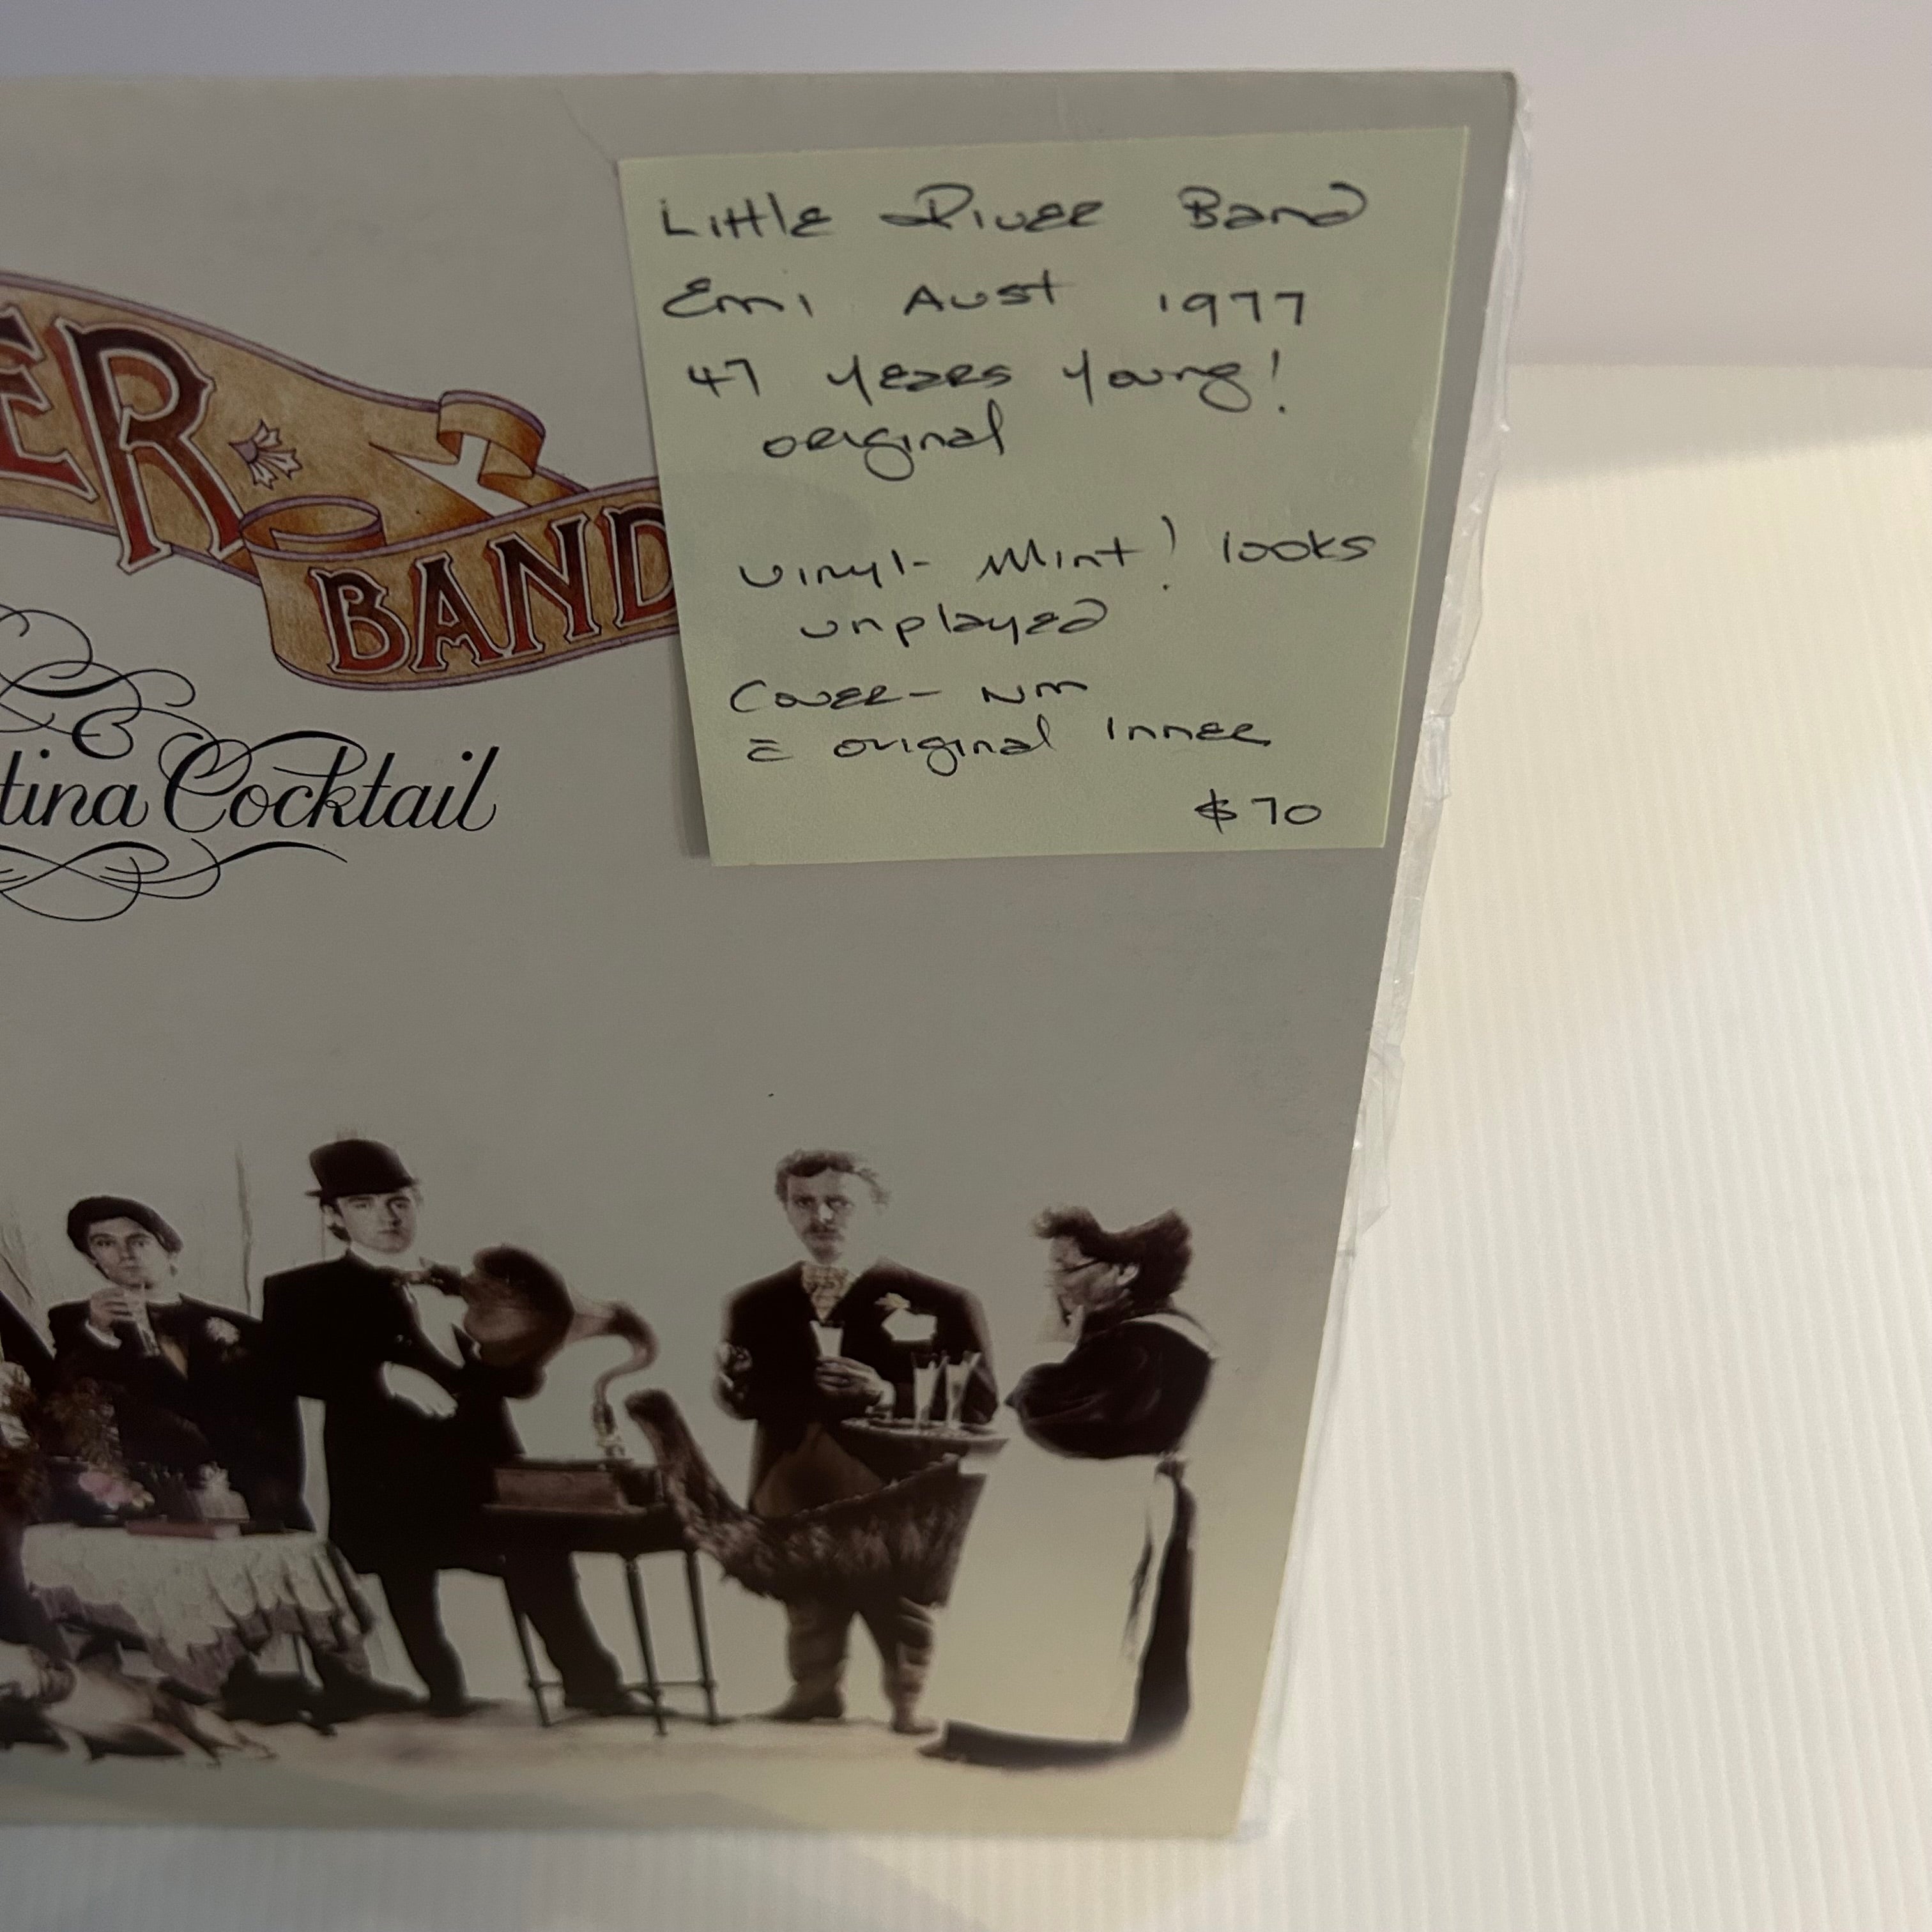 Little River Band
Emi Aust 1977
47 years young!
original
vinyl- Mint! looks
unplayed
Cover- NM
c original inner
$70
ER
BAND
tina Cocktail